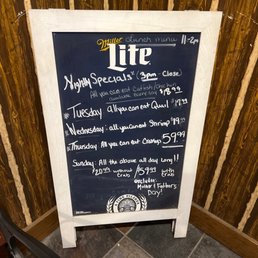 Miller Lunch menu 11-2pm
Lite
Nightly Specials" (3pm Close)
All you can eat Catfish/
available every day $18.99
Tuesday all you can eat Quail $19.99
Wednesday: all you can eat Shrimp $19.99
Thursday All you can eat Crawfish 59.99
Sunday: All the above all day long!!
$20.99 without crab / $59.99 with crab
exclude:
Mother / Father's
Day!